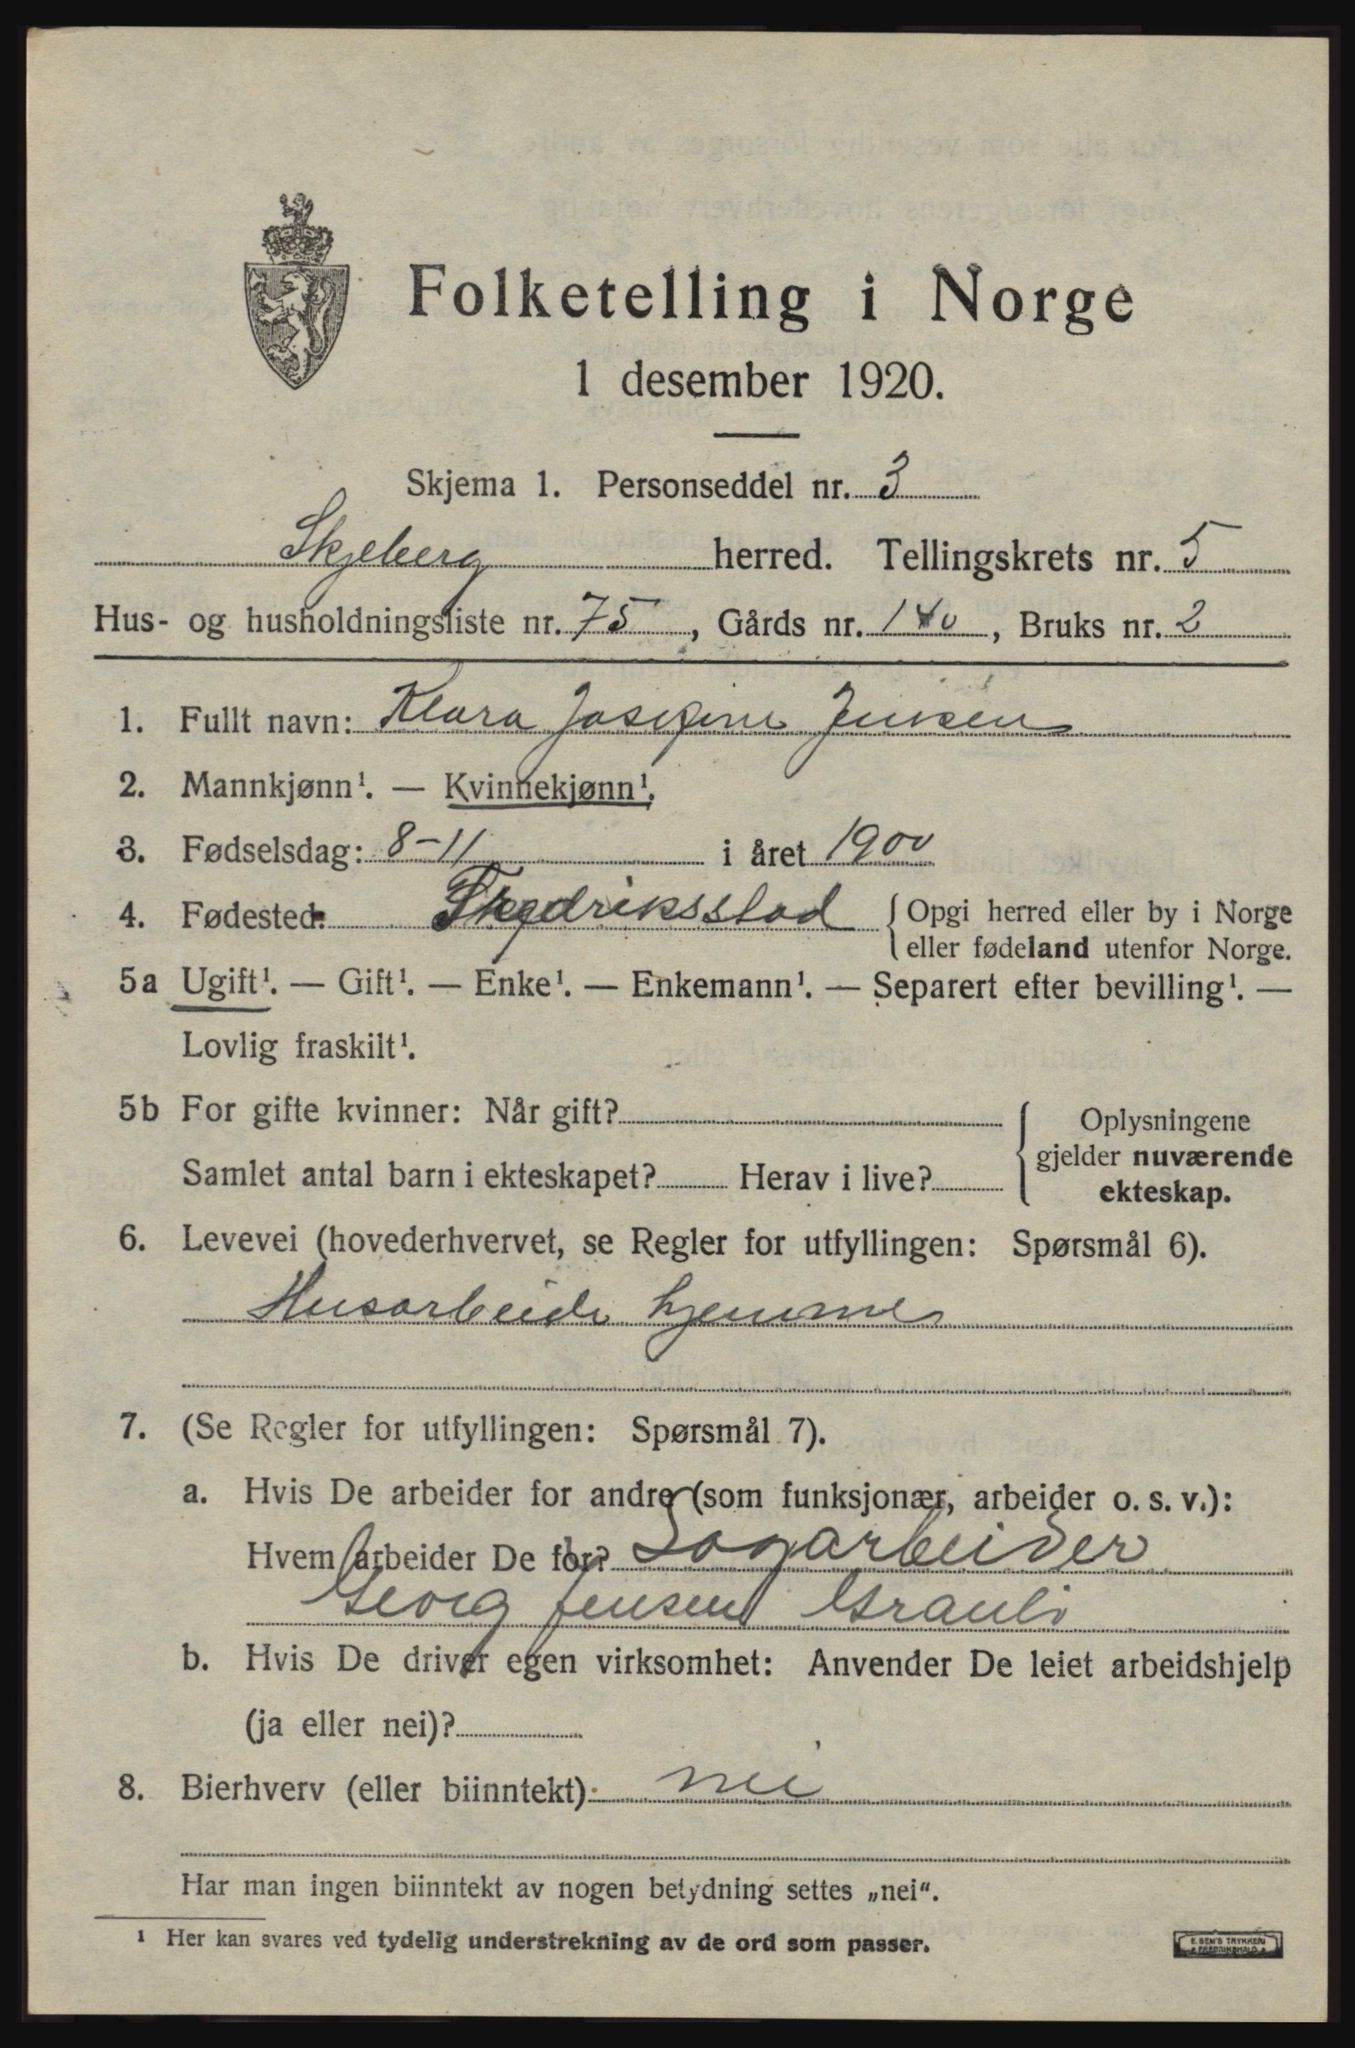 Folketelling i Norge
1 desember 1920.
Skjema 1. Personseddel nr. 3
Skjeberg herred. Tellingskrets nr. 5
Hus- og husholdningsliste nr. 75, Gårds nr. 140, Bruks nr. 2
1. Fullt navn: Klara Josefine Jensen
2. Mannkjønn¹. — Kvinnekjønn¹.
3. Fødselsdag: 8-11 i året 1900
4. Fødested: Fredriksstad { Opgi herred eller by i Norge
eller fødeland utenfor Norge.
5a Ugift¹. — Gift¹. — Enke¹. — Enkemann¹. — Separert efter bevilling¹. —
Lovlig fraskilt¹.
5b For gifte kvinner: Når gift? { Oplysningene
gjelder nuværende
Samlet antal barn i ekteskapet? Herav i live? ekteskap.
6. Levevei (hovederhvervet, se Regler for utfyllingen: Spørsmål 6).
Husarbeide hjemme
7. (Se Regler for utfyllingen: Spørsmål 7).
a. Hvis De arbeider for andre (som funksjonær, arbeider o. s. v.):
Hvem arbeider De for? Sagarbeider
Georg Jensen Grauli
b. Hvis De driver egen virksomhet: Anvender De leiet arbeidshjelp
(ja eller nei)?
8. Bierhverv (eller biinntekt) nei
Har man ingen biinntekt av nogen betydning settes „nei“.
¹ Her kan svares ved tydelig understrekning av de ord som passer.
E. SEM'S TRYKKERI
FREDRIKSHALD